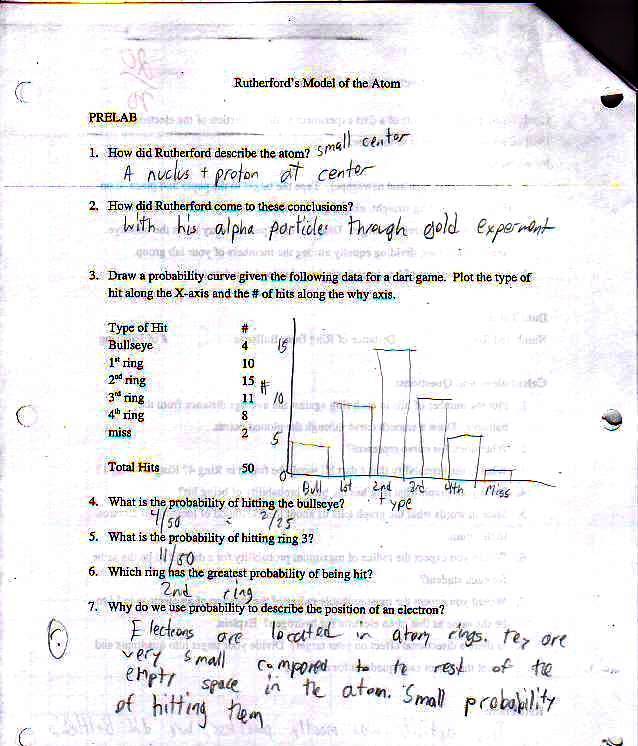 Rutherford's Model of the Atom
PRELAB
1. How did Rutherford describe the atom? small center
A nuclus + proton at center
2. How did Rutherford come to these conclusions?
With his alpha particle through gold experment
3. Draw a probability curve given the following data for a dart game. Plot the type of
hit along the X-axis and the # of hits along the why axis.
Type of Hit #
Bullseye 4
1st ring 10
2nd ring 15
3rd ring 11
4th ring 8
miss 2
Total Hits 50
15
#
10
5
0
Bull 1st 2nd 3rd 4th Miss
type
4. What is the probability of hitting the bullseye?
4/50 = 2/25
5. What is the probability of hitting ring 3?
11/50
6. Which ring has the greatest probability of being hit?
2nd ring
7. Why do we use probability to describe the position of an electron?
Electrons are located in atom rings. tey are
very small compared to te rest of the
empty space in te atom. Small probability
of hitting tem